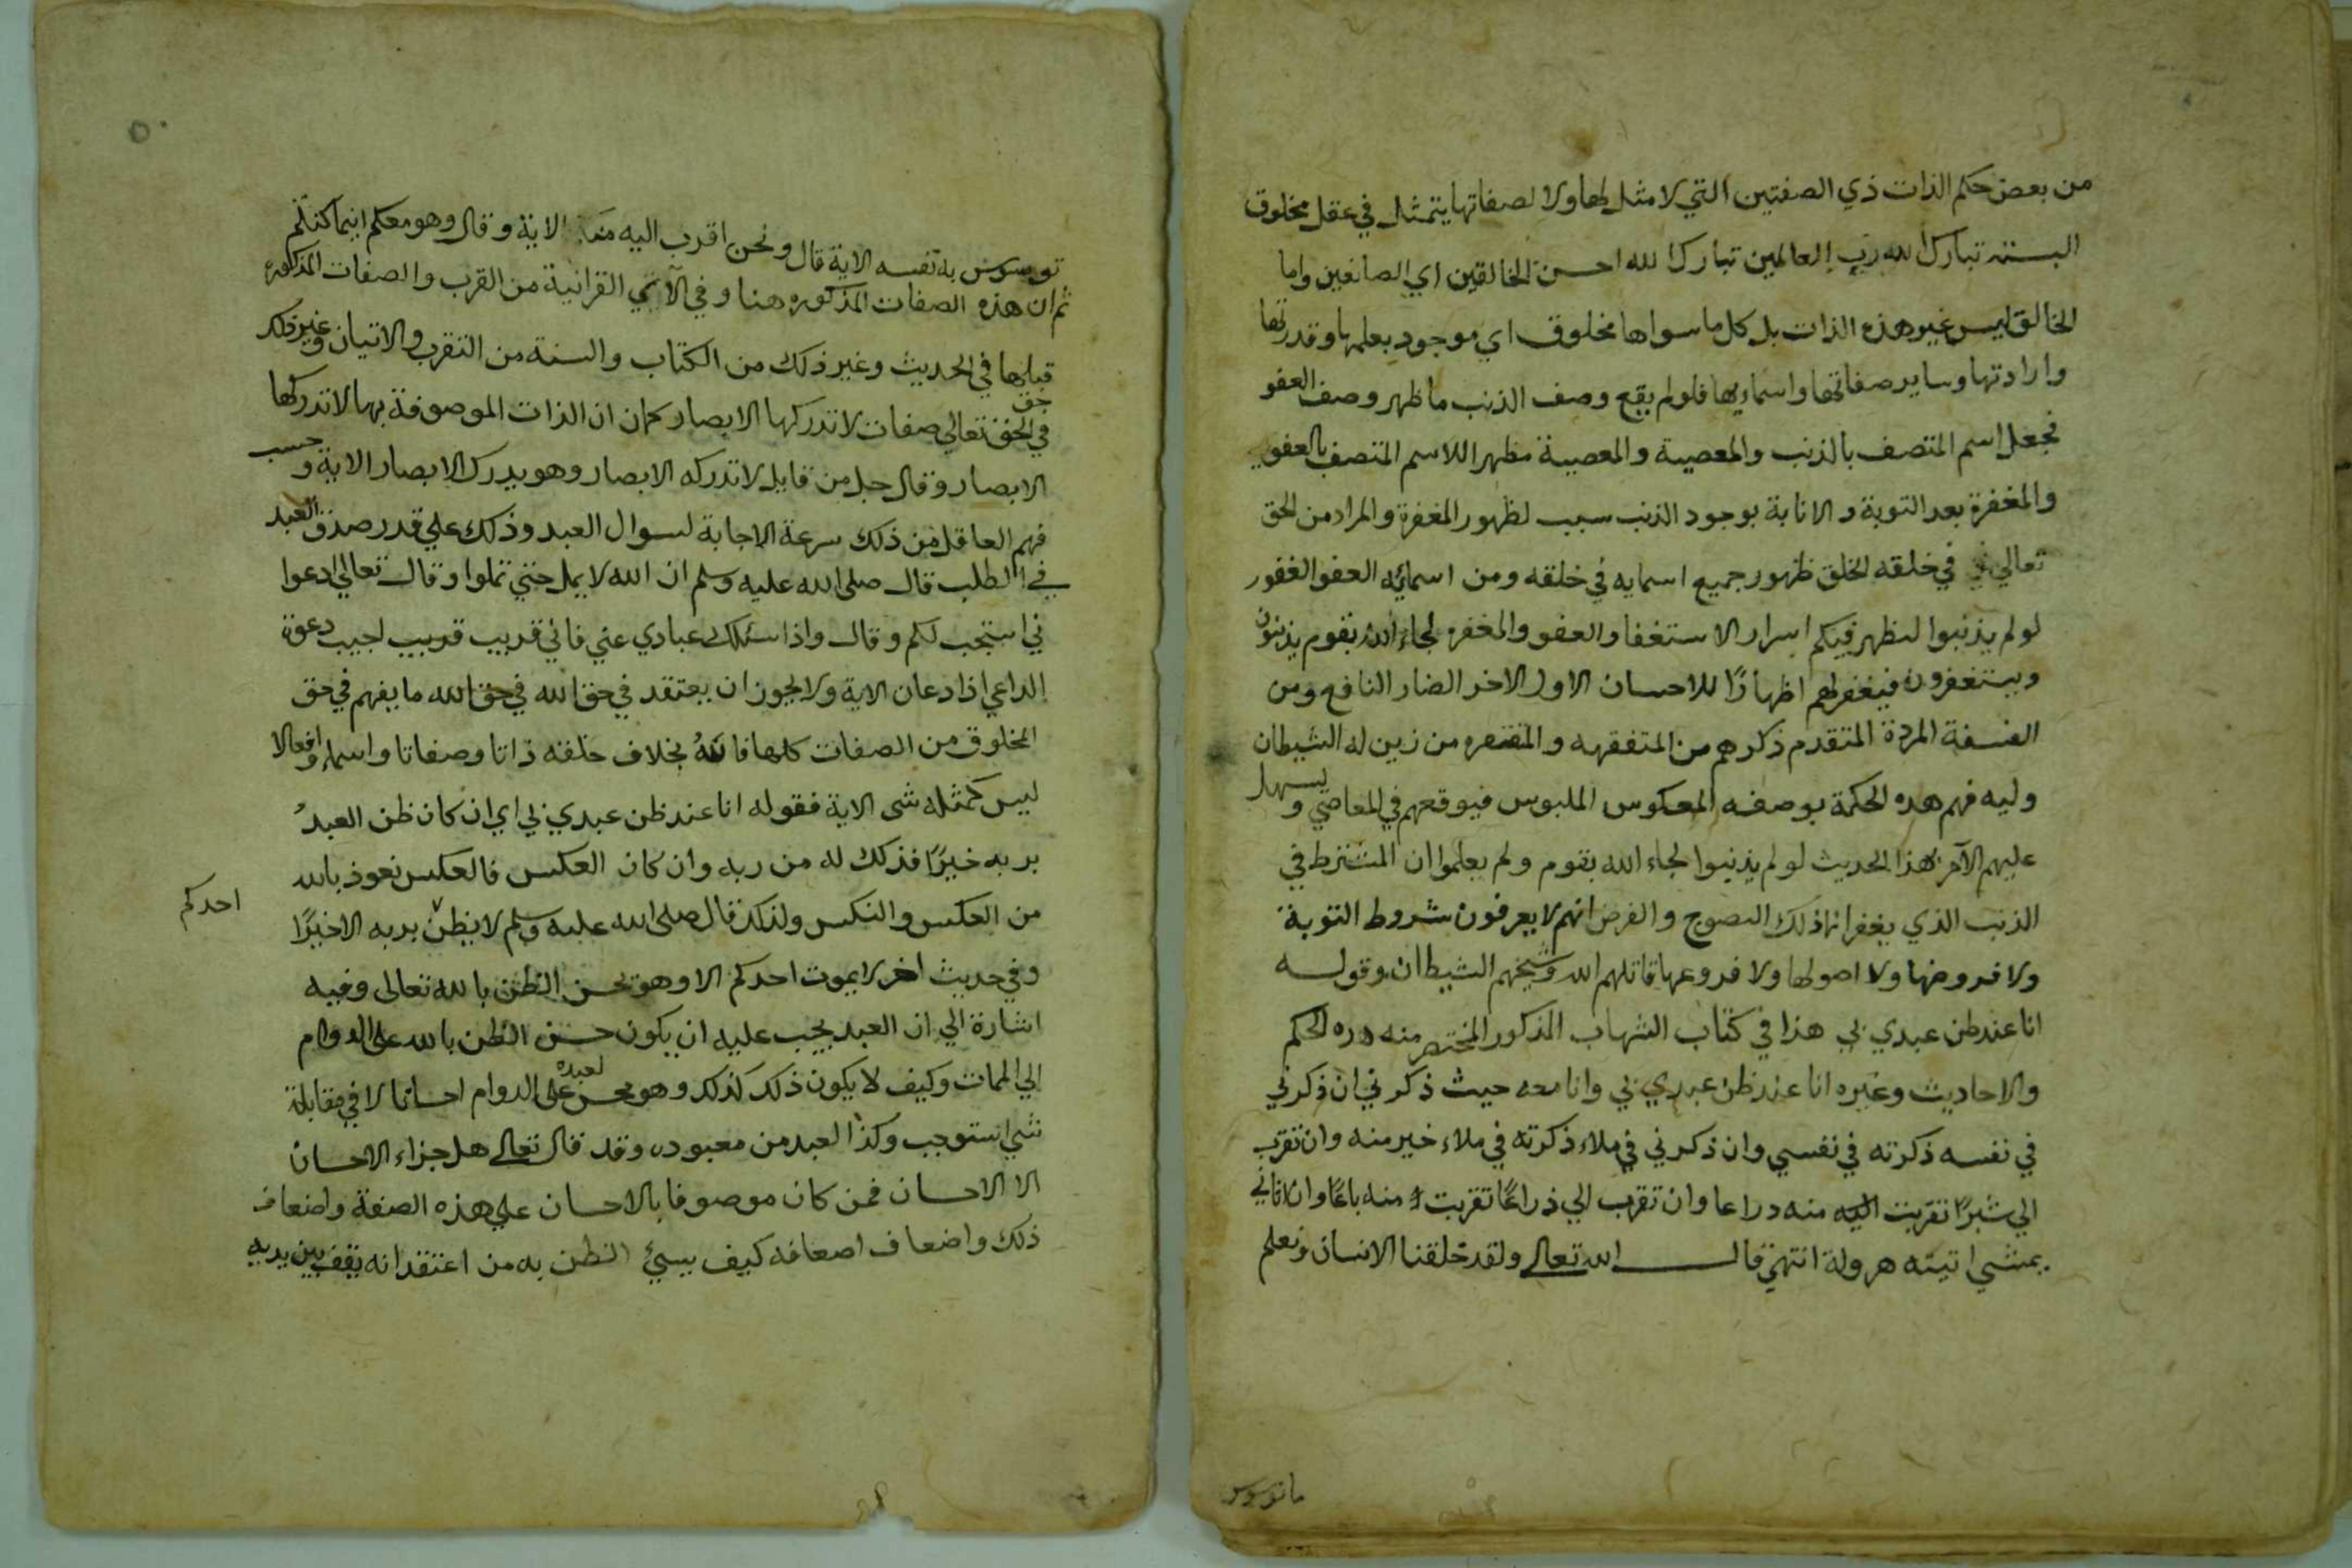 من بعض حكم الذات ذي الصفتين التي لا مثل لها ولا لصفاتها يتمثل في عقل مخلوق
البسته تبارك الله رب العالمين تبارك الله احسن الخالقين اي الصانعين واما
الخالق ليس غير هذه الذات بل كل ما سواها مخلوق اي موجود بعلمها وقدرتها
وارادتها وساير صفاتها واسمايها فلو لم يقع وصف الذنب ما ظهر وصف العفو
فجعل اسم المتصف بالذنب والمعصية والمعصية مظهرا للاسم المتصف بالعفو
والمغفرة بعد التوبة والانابة بوجود الذنب سبب لظهور المغفرة والمراد من الحق
تعالي في خلقه الخلق ظهور جميع اسمايه في خلقه ومن اسمائه العفو الغفور
لو لم يذنبوا لتظهر فيكم اسرار الاستغفار والعفو والمغفره لجاء الله بقوم يذنبون
ويستغفرون فيغفر لهم اظهارًا للاحسان الاول الاخر الضار النافع ومن
الفسقة المردة المتقدم ذكرهم من المتفقهه والمتفقره من زين له الشيطان
وليه فهم هذه الحكمة بوصفه المعكوس الملبوس فيوقعهم في المعاصي ويسهل
عليهم الآمر بهذا الحديث لو لم يذنبوا لجاء الله بقوم ولم يعلموا ان المشترط في
الذنب الذي يغفر انما ذلك النصوح والفرض انهم لا يعرفون شروط التوبة
ولا فروضها ولا اصولها ولا فروعها قاتلهم الله وشيخهم الشيطان وقوله
انا عند ظن عبدي بي هذا في كتاب الشهاب المذكور المختصر منه دره الحكم
والاحاديث وغيره انا عند ظن عبدي بي وانا معه حيث ذكرني ان ذكرني
في نفسه ذكرته في نفسي وان ذكرني في ملاء ذكرته في ملاء خير منه وان تقرب
الي شبرًا تقربت اليه منه دراعا وان تقرب الي ذراعًا تقربت منه باعًا وان اتاني
يمشي اتيته هرولة انتهي قال الله تعالي ولقد خلقنا الانسان ونعلم
ما توسوس
توسوس به نفسه الاية قال ونحن اقرب اليه منكم الاية وقال وهو معكم اينما كنتم
ثم ان هذه الصفات المذكوره هنا وفي الآتي القرانية من القرب والصفات المذكوره
قبلها في الحديث وغير ذلك من الكتاب والسنة من التقرب والاتيان وغير ذلك
في حق الحق تعالي صفات لا تدركها الابصار كمان ان الذات الموصوفة بها لا تدركها
الابصار وقال جل من قايل لا تدركه الابصار وهو يدرك الابصار الاية وحسب
فهم العاقل من ذلك سرعة الاجابة لسوال العبد وذلك علي قدر صدق العبد
في الطلب قال صلى الله عليه وسلم ان الله لا يمل حتي تملوا وقال تعالي ادعوا
ني استجب لكم وقال واذا سئلك عبادي عني فاني قريب قريب اجيب دعوة
الداعي اذا دعان الاية ولا يجوز ان يعتقد في حق الله في حق الله ما يفهم في حق
المخلوق من الصفات كلها فالله بخلاف خلقه ذاتا وصفاتا واسماء وافعالا
ليس كمثله شى الاية فقوله انا عند ظن عبدي بي اي ان كان ظن العبد
بربه خيرًا فذلك له من ربه وان كان العكس فالعكس نعوذ بالله
من العكس والنكس ولذلك قال صلى الله عليه وسلم لا يظن بربه الا خيرًا
احدكم
وفي حديث اخر لا يموت احدكم الا وهو يحسن الظن بالله تعالى وفيه
اشارة الي ان العبد يجب عليه ان يكون حسن الظن بالله على الدوام
الي الممات وكيف لا يكون ذلك كذلك وهو محسن لعبده على الدوام احسانا لا في مقابلة
شي استوجب وكذا العبد من معبوده وقد قال تعالي هل جزاء الاحسان
الا الاحسان فمن كان موصوفا بالاحسان علي هذه الصفة واضعاف
ذلك واضعاف اضعافه كيف يسيئ الظن به من اعتقد انه يقف بين يديه